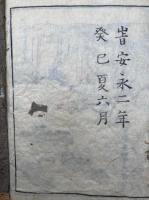 旹安永二年
癸巳夏六月